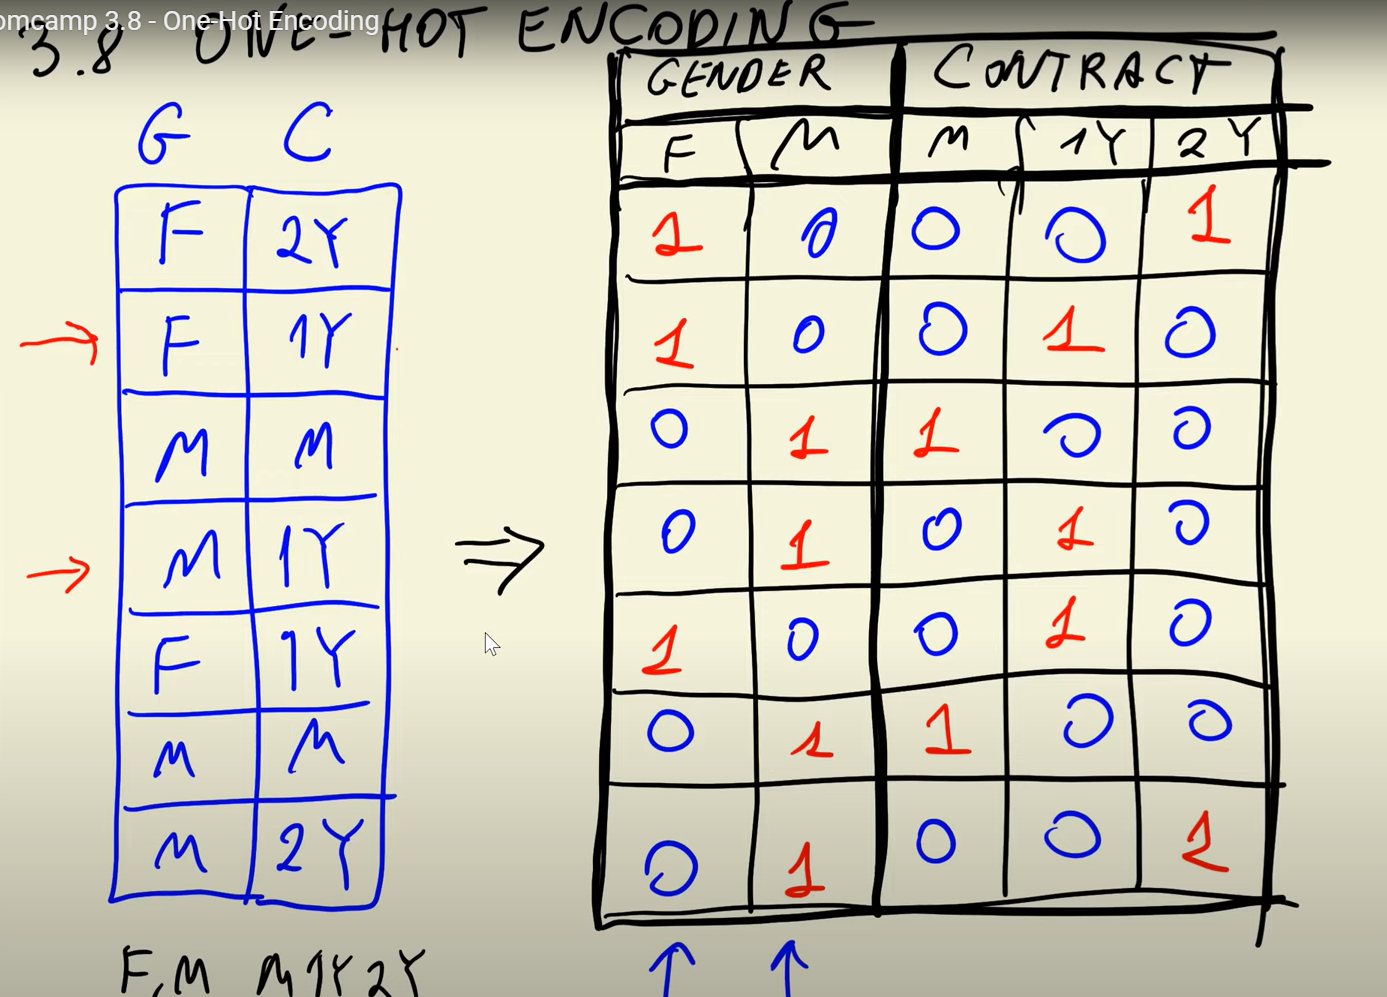 omcamp 3.8 - One-Hot Encoding
3.8 ONE-HOT ENCODING
G C
F 2Y
F 1Y
M M
M 1Y
F 1Y
M M
M 2Y
F, M M 1Y 2Y
GENDER CONTRACT
F M M 1Y 2Y
1 0 0 0 1
1 0 0 1 0
0 1 1 0 0
0 1 0 1 0
1 0 0 1 0
0 1 1 0 0
0 1 0 0 1